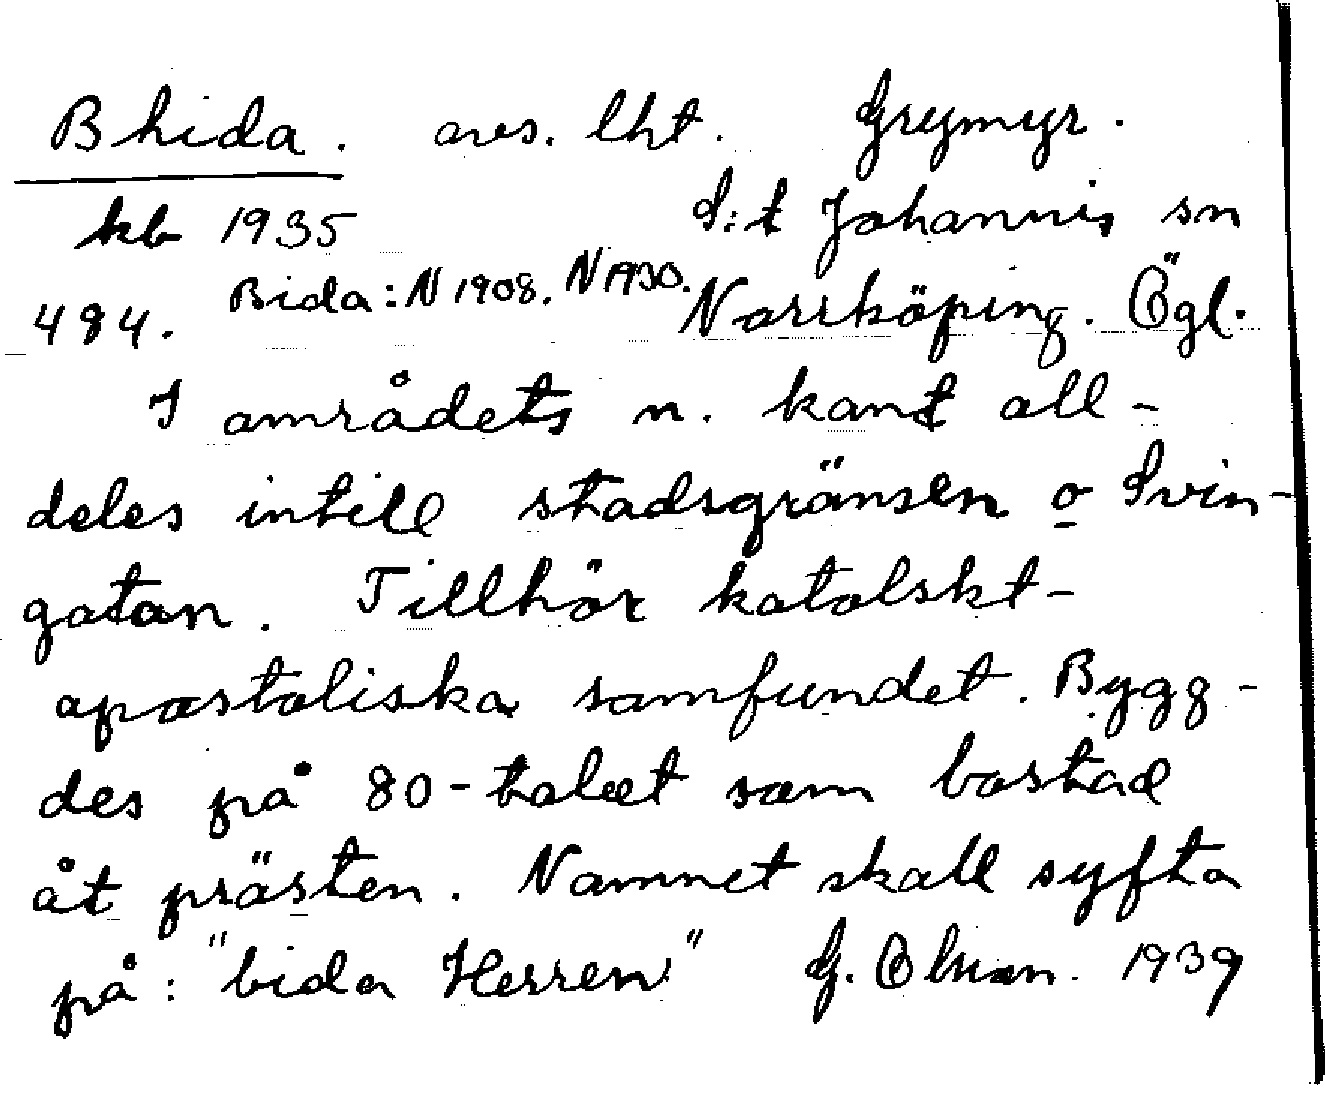 Bhida. avs. lht. Grymyr.
kb 1935 S:t Johannis sn
484. Bida: N 1908. N 1930. Norrköping. Ögl.
I områdets n. kant all-
deles intill stadsgränsen o Svin-
gatan. Tillhör katolskt-
apostoliska samfundet. Bygg-
des på 80-talet som bostad
åt prästen. Namnet skall syfta
på: "bida Herren" G. Olson. 1939